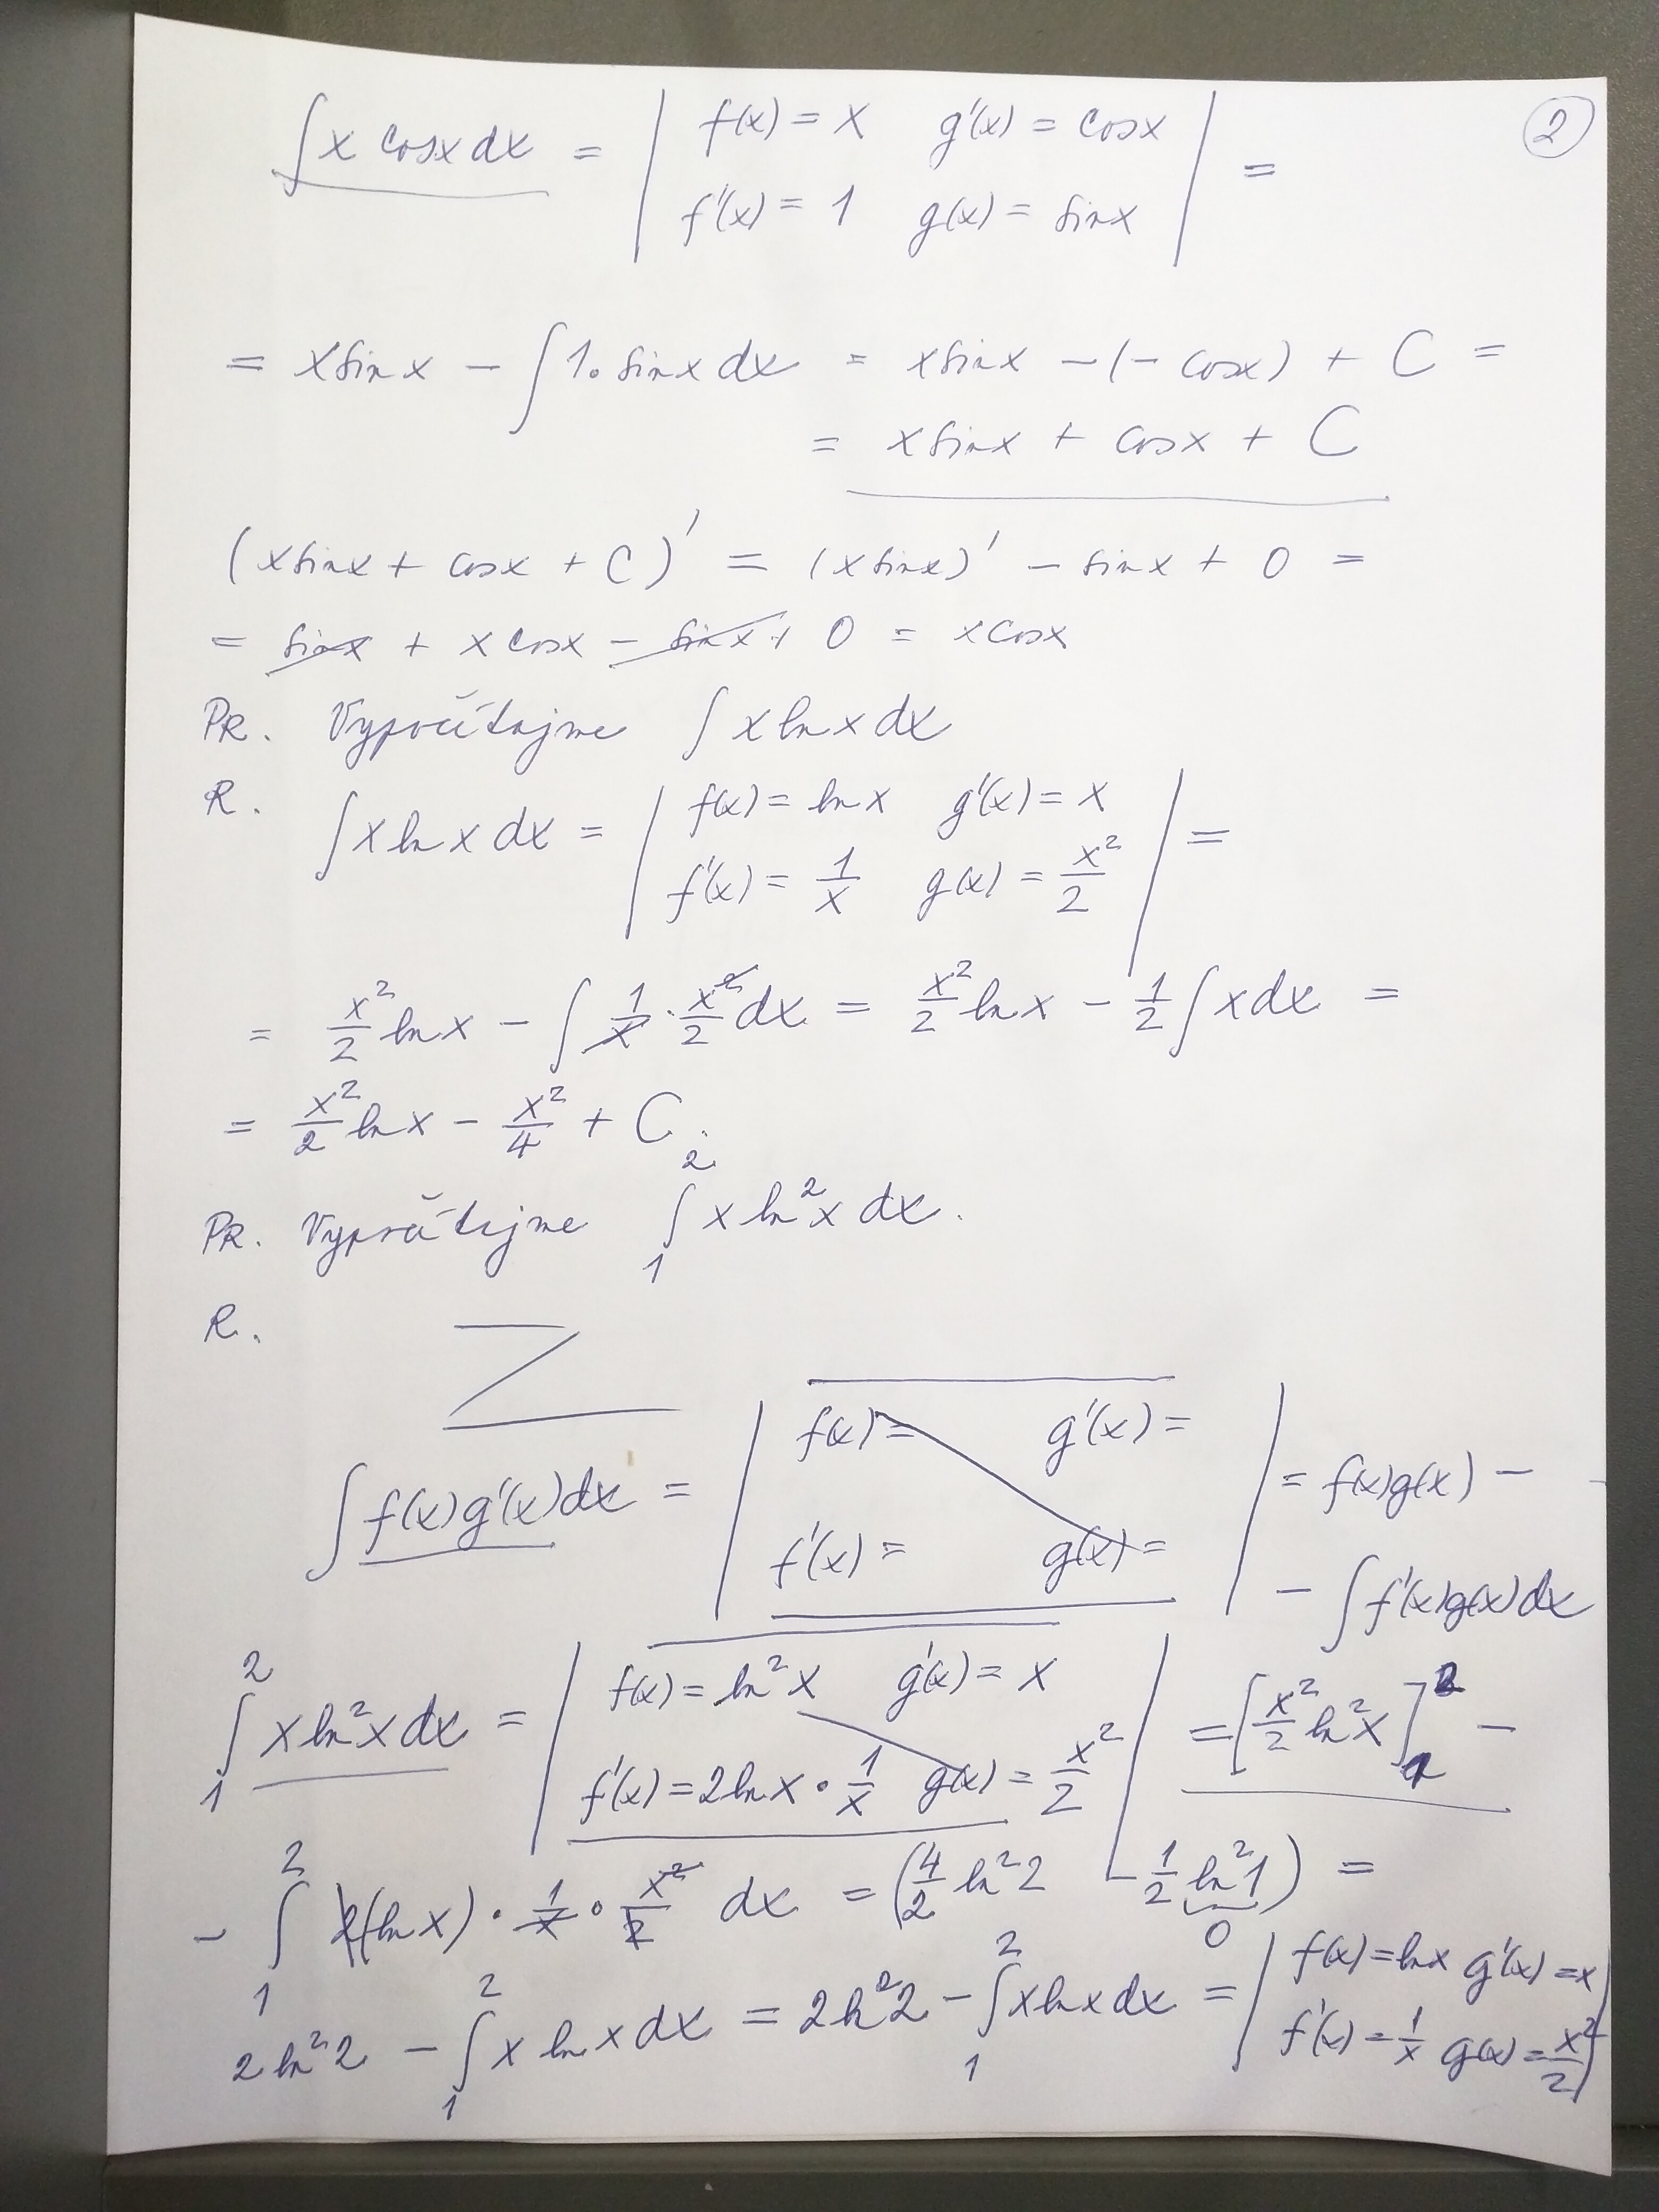 ②
∫ x cosx dx = | f(x) = x   g'(x) = cosx | =
f'(x) = 1   g(x) = sinx
= x sinx − ∫ 1. sinx dx = x sinx − (− cosx) + C =
= x sinx + cosx + C
(x sinx + cosx + C)' = (x sinx)' − sinx + 0 =
= sinx + x cosx − sinx + 0 = x cosx
PR. Vypočítajme ∫ x ln x dx
R. ∫ x ln x dx = | f(x) = ln x   g'(x) = x | =
f'(x) = 1/x   g(x) = x²/2
= x²/2 ln x − ∫ 1/x · x²/2 dx = x²/2 ln x − 1/2 ∫ x dx =
= x²/2 ln x − x²/4 + C.
PR. Vypočítajme ∫₁² x ln²x dx.
R.
∫ f(x) g'(x) dx = | f(x) =   g'(x) = | = f(x)g(x) −
f'(x) =   g(x) =
− ∫ f'(x)g(x) dx
∫₁² x ln²x dx = | f(x) = ln²x   g'(x) = x | = [x²/2 ln²x]₁² −
f'(x) = 2 ln x · 1/x   g(x) = x²/2
− ∫₁² 2(ln x) · 1/x · x²/2 dx = (4/2 ln²2 − 1/2 ln²1) =
0
2 ln²2 − ∫₁² x ln x dx = 2 ln²2 − ∫₁² x ln x dx = | f(x) = ln x   g'(x) = x |
f'(x) = 1/x   g(x) = x²/2